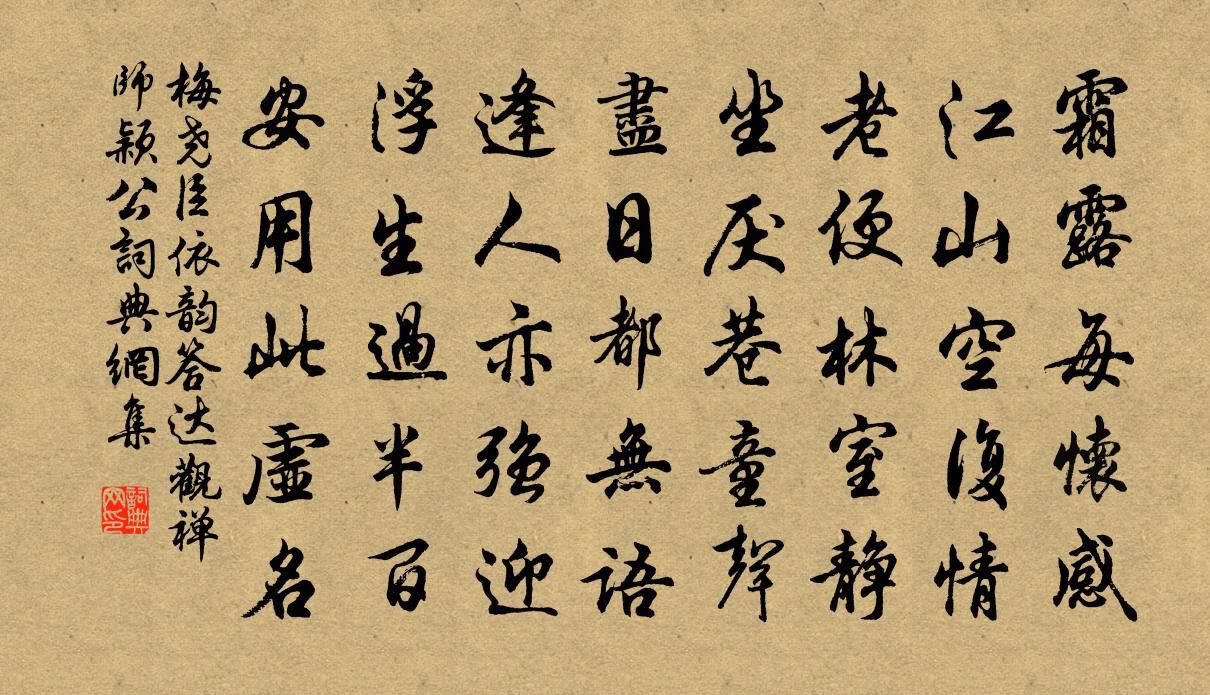 霜露每懷感
江山空復情
老便林室静
坐厌巷童聲
盡日都無語
逢人亦强迎
浮生過半百
安用此虛名
梅尧臣依韵答达觀禅
師颖公詞典網集
詞典
网印